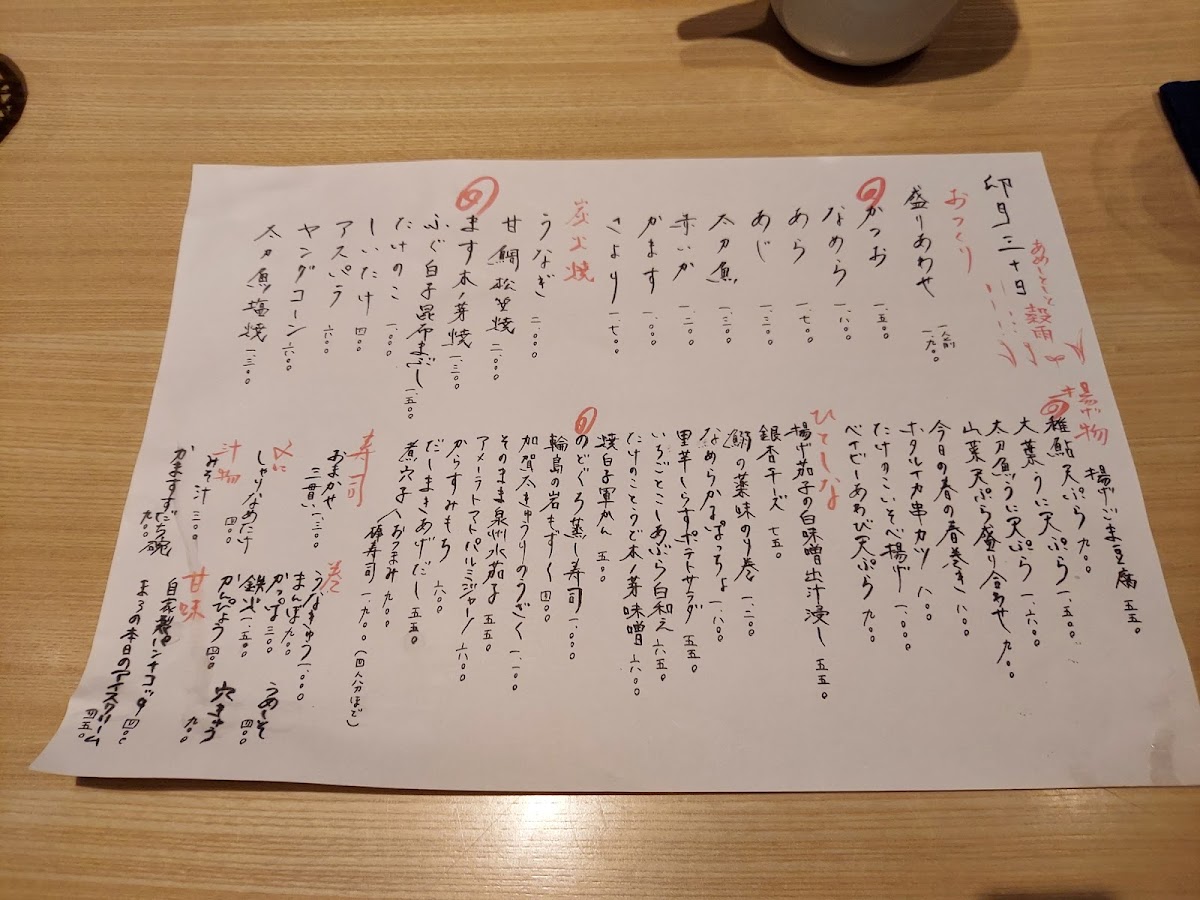 卯月三十日
穀雨
おつくり
盛りあわせ 一人前 一、九〇〇
旬 かつお 一、五〇〇
なめら 一、八〇〇
あら 一、七〇〇
あじ 一、三〇〇
太刀魚 一、三〇〇
赤いか 一、二〇〇
かます 一、〇〇〇
さより 一、七〇〇
炭火焼
うなぎ 二、〇〇〇
甘鯛松笠焼 二、〇〇〇
旬 ます木ノ芽焼 一、三〇〇
ふぐ白子昆布まぶし 一、五〇〇
たけのこ 一、〇〇〇
しいたけ 四〇〇
アスパラ 六〇〇
ヤングコーン 六〇〇
太刀魚塩焼 一、三〇〇
揚げごま豆腐 五五〇
揚げ物
旬 稚鮎天ぷら 九〇〇
大葉うに天ぷら 一、五〇〇
太刀魚うに天ぷら 一、六〇〇
山菜天ぷら盛り合わせ 九〇〇
今日の春の春巻き 八〇〇
ホタルイカ串カツ 八〇〇
たけのこいそべ揚げ 一、〇〇〇
ベイビーあわび天ぷら 九〇〇
ひてしな
揚げ茄子の白味噌出汁浸し 五五〇
銀杏チーズ 七五〇
鰯の薬味のり巻 一、二〇〇
なめらかまぼっちょ 一、八〇〇
里芋しらすポテトサラダ 五五〇
いちごとこしあぶら白和え 六五〇
たけのことうで木ノ芽味噌 六〇〇
焼白子軍かん 五〇〇
旬 のどぐろ蒸し寿司 一、〇〇〇
輪島の岩もずく 四〇〇
加賀太きゅうりのうざく 一、一〇〇
そのまま泉州水茄子 五五〇
アメーラトマトパルミジャーノ 六〇〇
からすみもち 六〇〇
だしまきあげだし 五五〇
煮穴子(おつまみ) 九〇〇
寿司
棒寿司 一、九〇〇(四人分ほど)
おまかせ
三貫 一、二〇〇
巻
うなきゅう 一、〇〇〇
まんぼ 九〇〇
かっぱ 三〇〇
うめしそ 四〇〇
鉄火 一、五〇〇
かんぴょう 四〇〇
穴きゅう 九〇〇
〆に
しゃりなめたけ 四〇〇
汁物
みそ汁 三〇〇
かますすだち碗 九〇〇
甘味
自家製パンナコッタ 四〇〇
まろの本日のアイスクリーム 四五〇